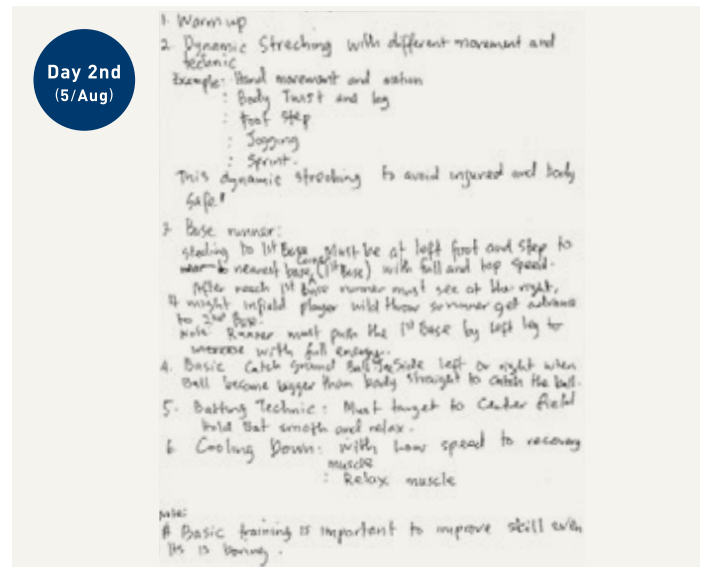 Day 2nd
(5/Aug)
1. Warm up
2. Dynamic Streching with different movement and
technic
Example: Hand movement and action
: Body Twist and leg
: Foot step
: Jogging
: Sprint.
This dynamic streching to avoid injured and body
safe!
3. Base runner:
stealing to 1st Base must be at left foot and step to
to nearest base corner (1st Base) with full and top speed.
After reach 1st Base runner must see at the right,
it might infield player wild throw so runner get advance
to 2nd Base.
Note: Runner must push the 1st Base by left leg to
increase with full energy.
4. Basic Catch Ground Ball: Side left or right when
Ball become bigger than body straight to catch the ball.
5. Batting Technic: Must target to Center field
hold Bat smoth and relax.
6. Cooling Down: with Low speed to recovery
muscle
: Relax muscle
note:
# Basic training is important to improve skill even
its is boring.